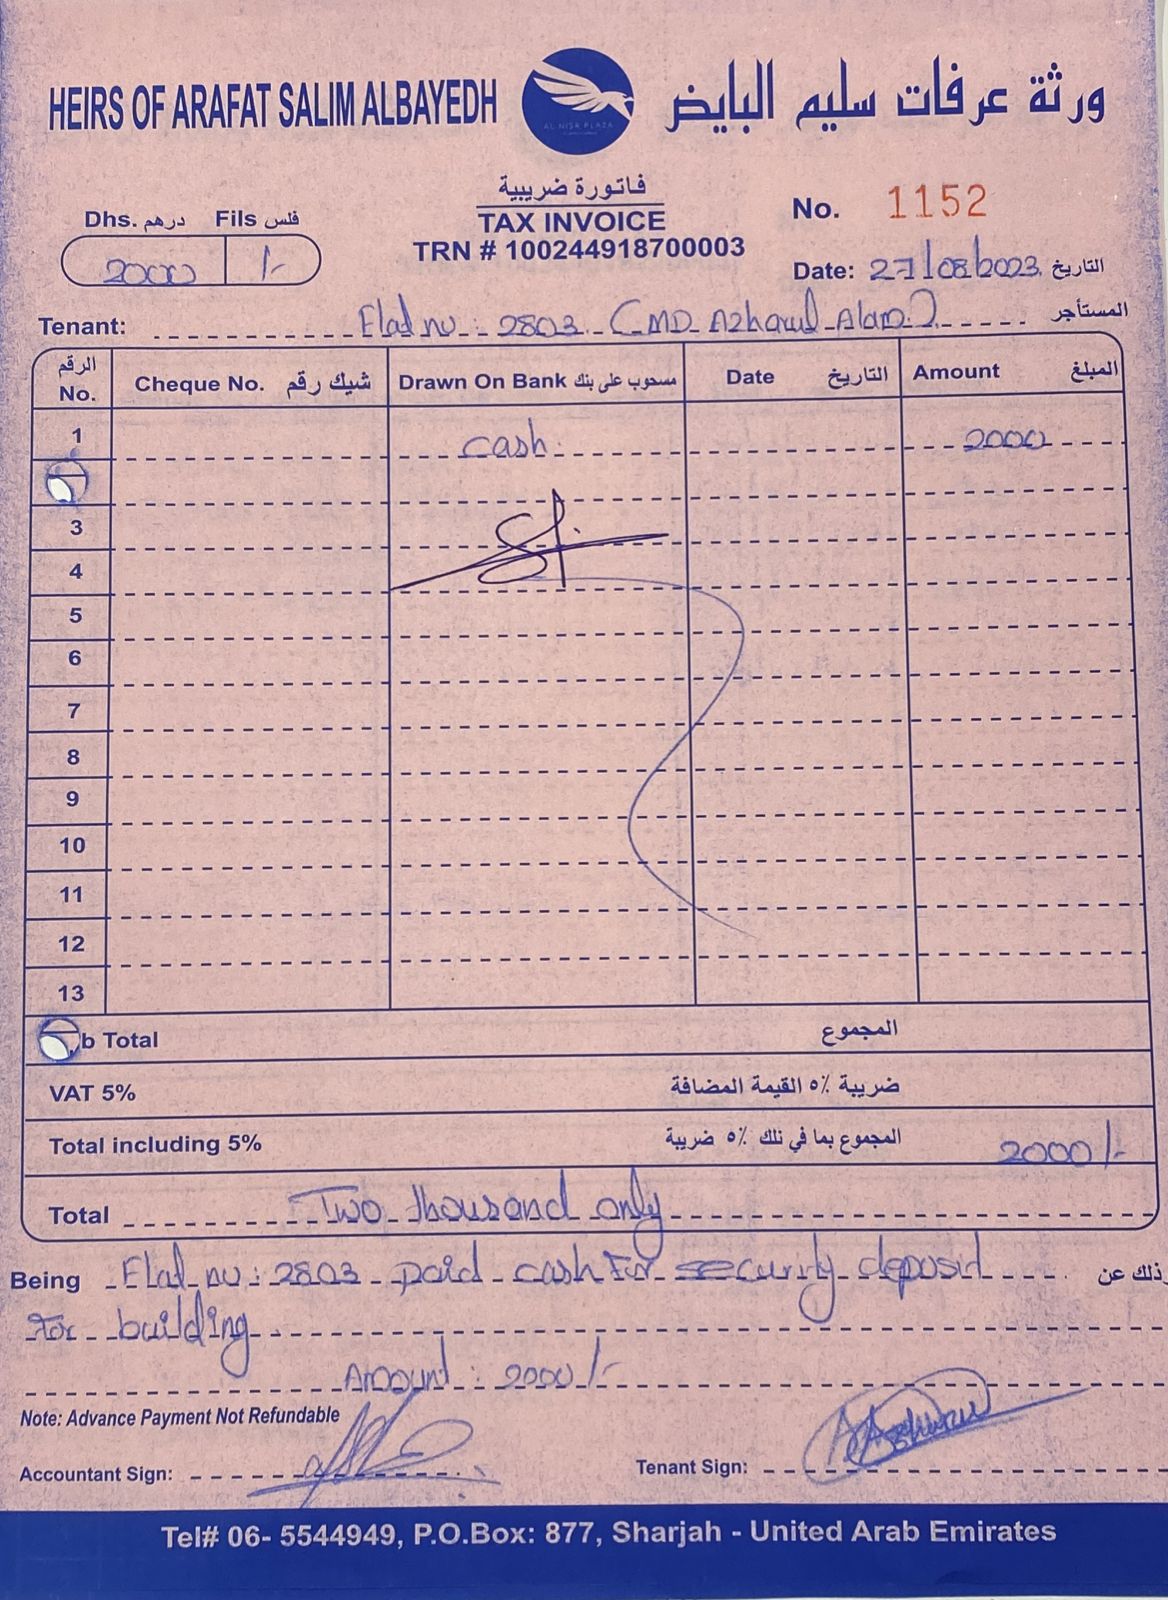 HEIRS OF ARAFAT SALIM ALBAYEDH
ورثة عرفات سليم البايض
AL NISR PLAZA
فاتورة ضريبية
TAX INVOICE
TRN # 100244918700003
Dhs. درهم Fils فلس
2000 /-
No. 1152
Date: 27/08/2023 التاريخ
Tenant: Flat no 2803 (MD Azharul Alam) المستأجر
الرقم No. Cheque No. شيك رقم Drawn On Bank مسحوب على بنك Date التاريخ Amount المبلغ
1 cash 2000
3
4
5
6
7
8
9
10
11
12
13
b Total المجموع
VAT 5% ضريبة ٥٪ القيمة المضافة
Total including 5% المجموع بما في تلك ٥٪ ضريبة 2000/-
Total Two thousand only
Being Flat no: 2803 paid cash For security deposit وذلك عن
For building
Amount : 2000/-
Note: Advance Payment Not Refundable
Accountant Sign: Tenant Sign:
Tel# 06- 5544949, P.O.Box: 877, Sharjah - United Arab Emirates